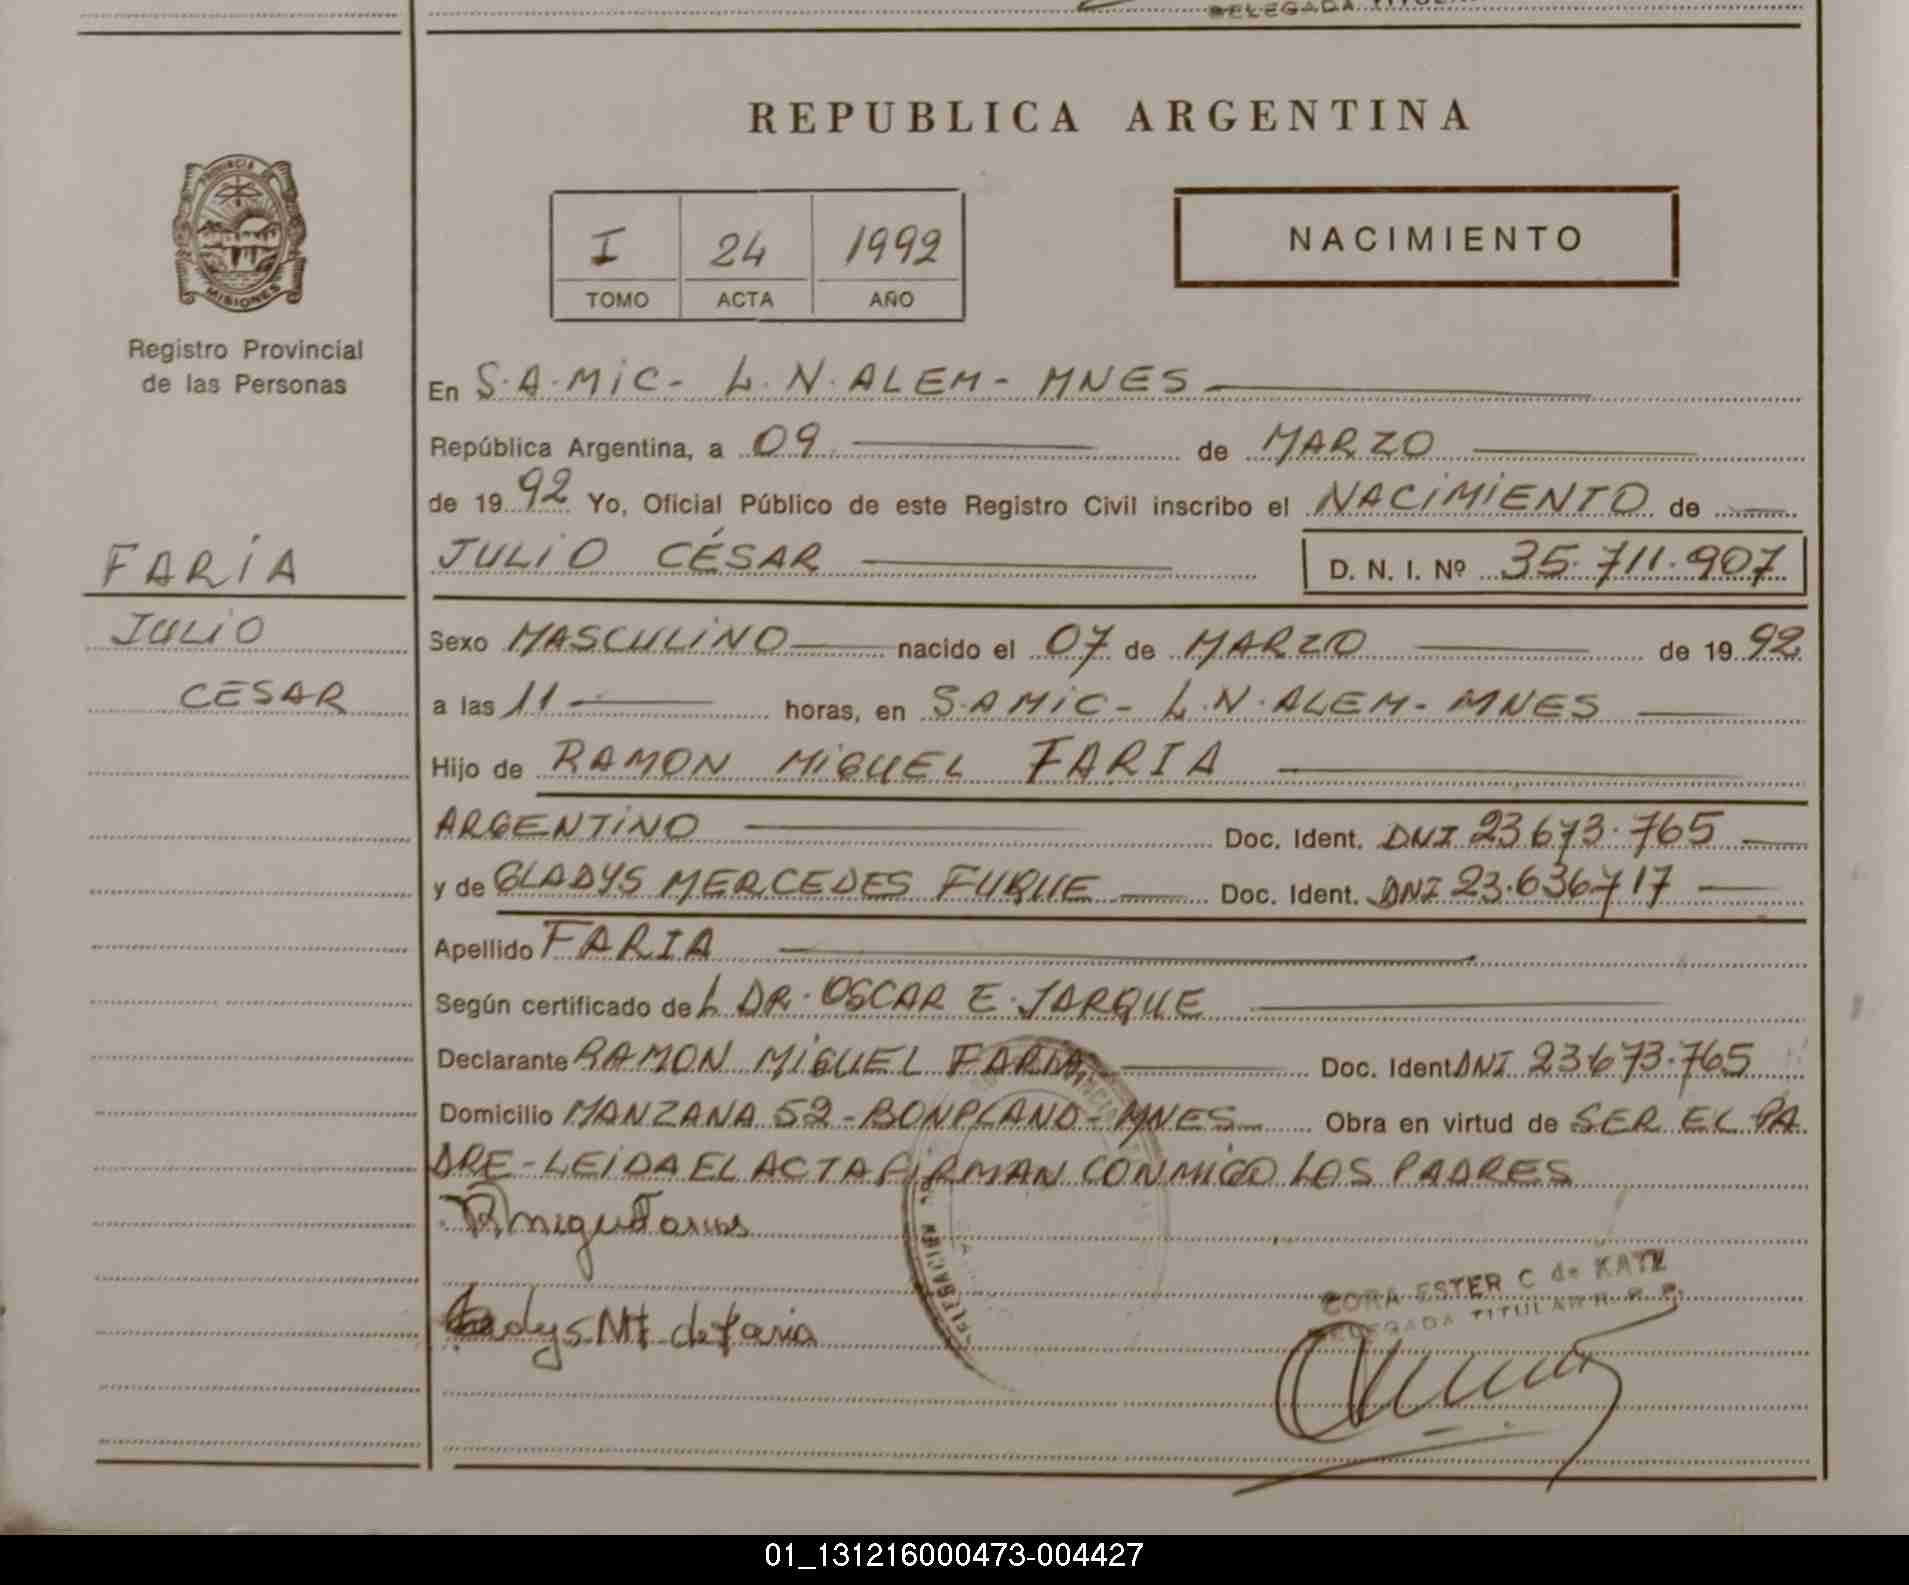 DELEGADA TITULAR
REPUBLICA ARGENTINA
PROVINCIA DE
MISIONES
Registro Provincial
de las Personas
I 24 1992
TOMO ACTA AÑO
NACIMIENTO
En S.A.MiC- L.N.ALEM- MNES
República Argentina, a 09 de MARZO
de 19 92 Yo, Oficial Público de este Registro Civil inscribo el NACiMiENTO de
FARÍA
JULiO CÉSAR D. N. I. Nº 35.711.907
JULiO
Sexo MASCULiNO nacido el 07 de MARZO de 19 92
CESAR
a las 11 horas, en S.AMiC- L.N.ALEM- MNES
Hijo de RAMON MiGUEL FARIA
ARGENTiNO Doc. Ident. DNI 23.673.765
y de GLADYS MERCEDES FUQUE Doc. Ident. DNI 23.636717
Apellido FARIA
Según certificado de L DR. OSCAR E. JARQUE
Declarante RAMON MiGUEL FARIA Doc. Ident DNI 23.673.765
Domicilio MANZANA 52 - BONPLAND - MNES Obra en virtud de SER EL PA
DRE - LEiDA EL ACTA FiRMAN CONMiGO LOS PADRES
CORA ESTER C de KATZ
DELEGADA TITULAR R. P. P.
de Faria
01_131216000473-004427